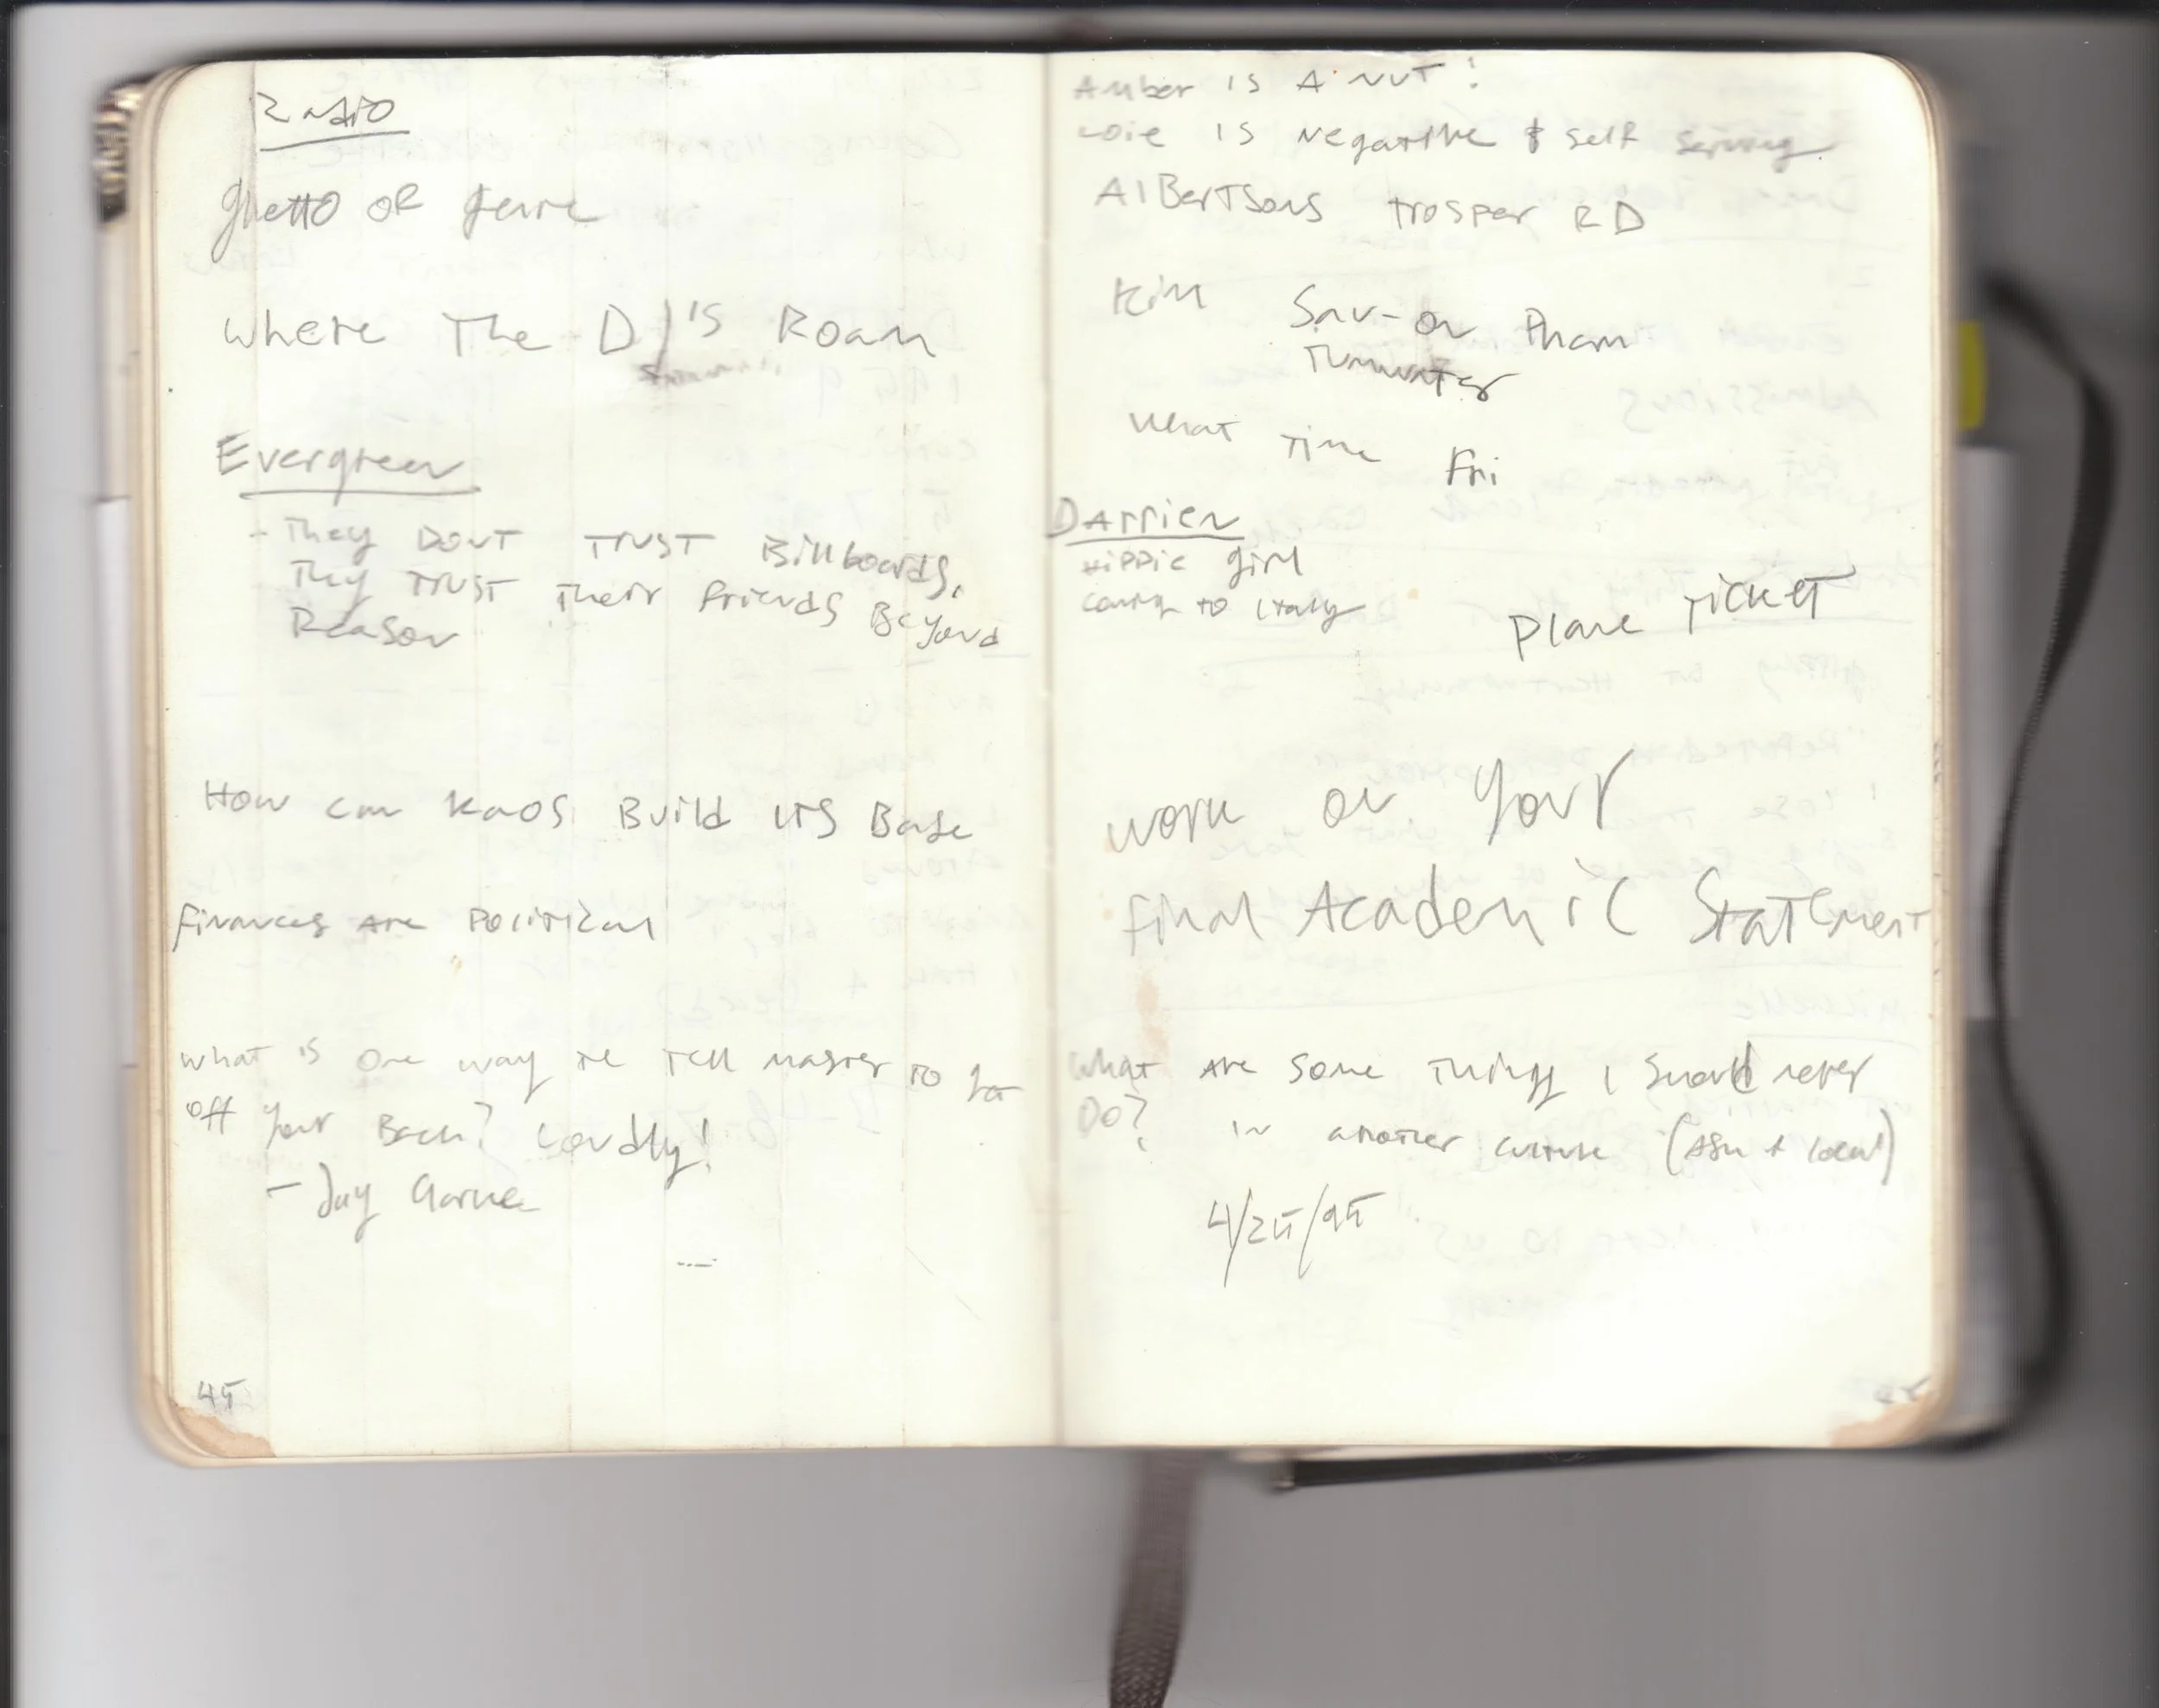 Radio
Ghetto of genre
where The DJ's Roam
Evergreen
- They DONT TRUST Billboards,
They TRUST Their friends Beyond
Reason
How can KAOS Build ITS Base
finances Are Political
what is one way to Tell master to get
off your Back? Loudly!
- Jay
45
Amber IS A NUT!
is Negative & self serving
AlBerTsons trosper RD
Kim Sav-on Pharm
Tumwater
what Time Fri
DArrien
Hippie girl
to Italy
Plane TICKET
work on your
final Academic STaTement
What Are Some Things I Should never
DO? IN another culture (ask a local)
4/25/95